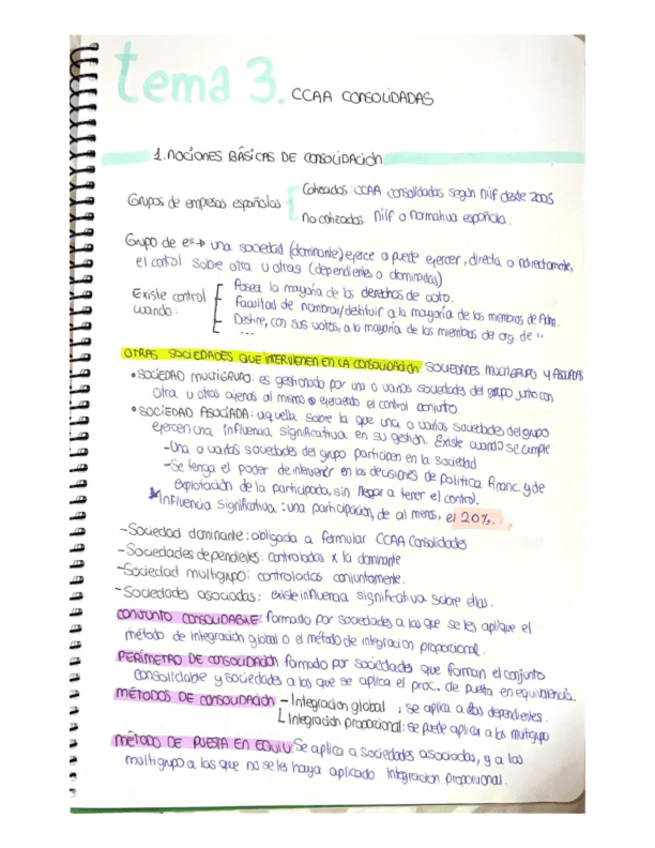 tema 3. CCAA CONSOLIDADAS
1. NOCIONES BÁSICAS DE CONSOLIDACIÓN
Grupos de empresas españolas
Cotizados: CCAA consolidadas según NIIF desde 2005
No cotizados: NIIF o normativa española.
Grupo de eª → una sociedad (dominante) ejerce o puede ejercer, directa o indirectamente,
el control sobre otra u otras (dependientes o dominadas)
Existe control cuando:
Posea la mayoría de los derechos de voto.
Facultad de nombrar/destituir a la mayoría de los miembros de Adm.
Desine, con sus votos, a la mayoría de los miembros de org. de "
...
OTRAS SOCIEDADES QUE INTERVIENEN EN LA CONSOLIDACIÓN: SOCIEDADES MULTIGRUPO Y ASOCIADAS
• SOCIEDAD MULTIGRUPO: es gestionada por una o varias sociedades del grupo junto con
otra u otras ajenas al mismo ejerciendo el control conjunto
• SOCIEDAD ASOCIADA: aquella sobre la que una o varias sociedades del grupo
ejercen una influencia significativa en su gestión. Existe cuando se cumple
- Una o varias sociedades del grupo participen en la sociedad
- Se tenga el poder de intervenir en las decisiones de política financ. y de
explotación de la participada, sin llegar a tener el control.
Influencia significativa: una participación, de al menos, el 20%.
- Sociedad dominante: obligada a formular CCAA Consolidadas
- Sociedades dependientes: controladas x la dominante
- Sociedad multigrupo: controladas conjuntamente.
- Sociedades asociadas: existe influencia significativa sobre ellas.
CONJUNTO CONSOLIDABLE: formado por sociedades a las que se les aplique el
método de integración global o el método de integración proporcional.
PERÍMETRO DE CONSOLIDACIÓN: formado por sociedades que forman el conjunto
consolidable y sociedades a las que se aplica el proc. de puesta en equivalencia.
MÉTODOS DE CONSOLIDACIÓN: - Integración global: se aplica a las dependientes.
Integración proporcional: se puede aplicar a las multigrupo
MÉTODO DE PUESTA EN EQUIV: Se aplica a sociedades asociadas, y a las
multigrupo a las que no se les haya aplicado Integración proporcional.